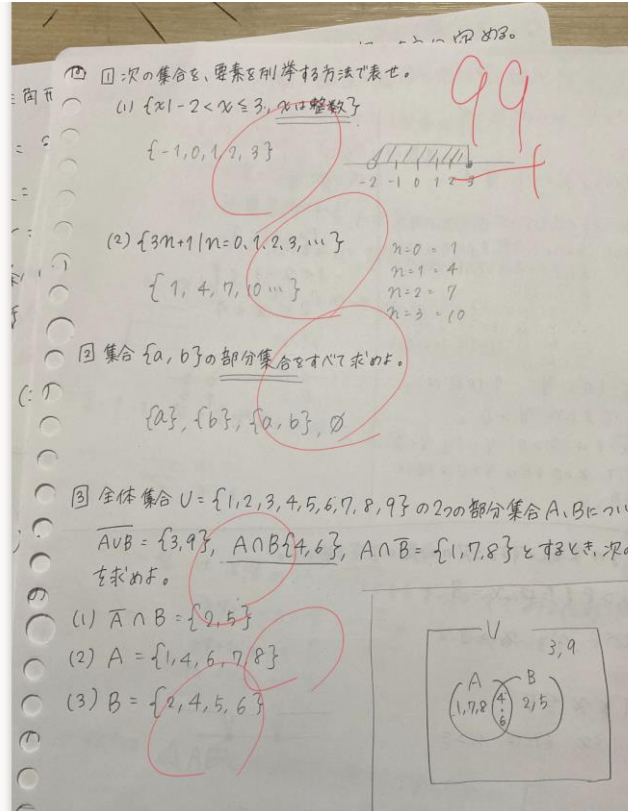 める。
① 次の集合を、要素を列挙する方法で表せ。
(1) {x|-2<x≦3, xは整数}
{-1,0,1,2,3}
-2 -1 0 1 2 3
99
(2) {3n+1|n=0,1,2,3,…}
{1, 4, 7, 10…}
n=0=1
n=1=4
n=2=7
n=3=10
② 集合{a, b}の部分集合をすべて求めよ。
{a}, {b}, {a, b}, ∅
③ 全体集合U={1,2,3,4,5,6,7,8,9}の2つの部分集合A、Bについ
A∪B={3,9}, A∩B{4,6}, A∩B={1,7,8}とするとき、次の
を求めよ。
(1) A∩B={2,5}
(2) A={1,4,6,7,8}
(3) B={2,4,5,6}
U
3,9
A B
1,7,8 4・6 2,5